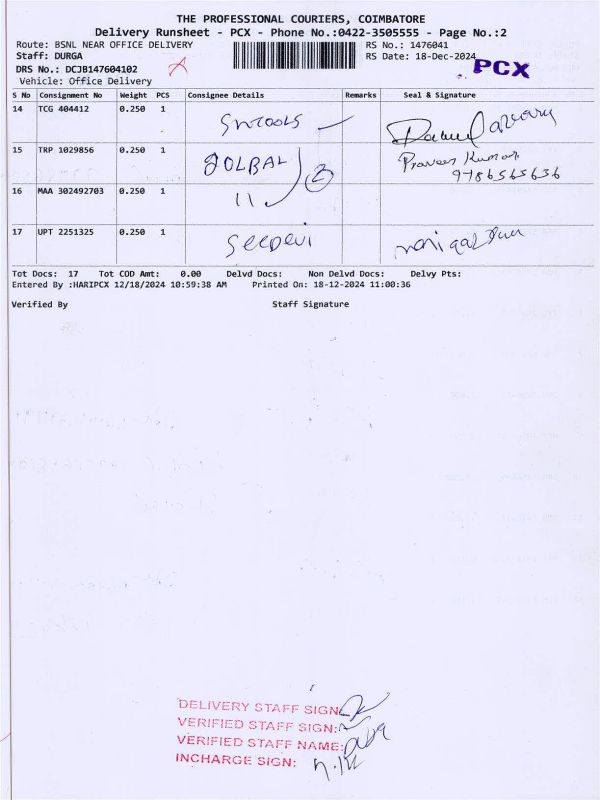 THE PROFESSIONAL COURIERS, COIMBATORE
Delivery Runsheet - PCX - Phone No.:0422-3505555 - Page No.:2
Route: BSNL NEAR OFFICE DELIVERY RS No.: 1476041
Staff: DURGA RS Date: 18-Dec-2024
DRS No.: DCJB147604102 PCX
Vehicle: Office Delivery
S No Consignment No Weight PCS Consignee Details Remarks Seal & Signature
14 TCG 404412 0.250 1
15 TRP 1029856 0.250 1 GOLBAL 2 Praveen Kumar
9786565636
16 MAA 302492703 0.250 1 11
17 UPT 2251325 0.250 1
Tot Docs: 17 Tot COD Amt: 0.00 Delvd Docs: Non Delvd Docs: Delvy Pts:
Entered By :HARIPCX 12/18/2024 10:59:38 AM Printed On: 18-12-2024 11:00:36
Verified By Staff Signature
DELIVERY STAFF SIGN:
VERIFIED STAFF SIGN:
VERIFIED STAFF NAME:
INCHARGE SIGN: